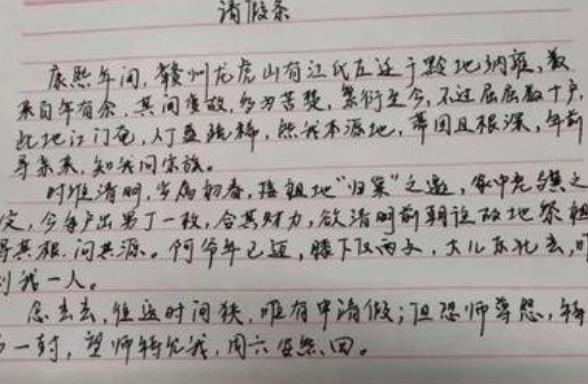 请假条
康熙年间,赣州龙虎山有江氏左迁于黔地纳雍,数
来自年有余,其间变故,多为苦楚,繁衍至今,不过屈屈数十户,
此地江门奄,人丁并稀,然我本源地,蒂固且根深,年前
寻亲来,知我同宗族。
时惟清明,岁属初春,接祖地“归巢”之邀,家中老与族之
定,今每户出男丁一枚,合其财力,欲清明前朝往故地祭祖
寻其根,问其源。阿爷年已迈,膝下仅两女,大儿东北去,
到我一人。
忽去去,往返时间狭,唯有申请假;但恐师尊怨,特
一封,望师特允我,周六安然回。